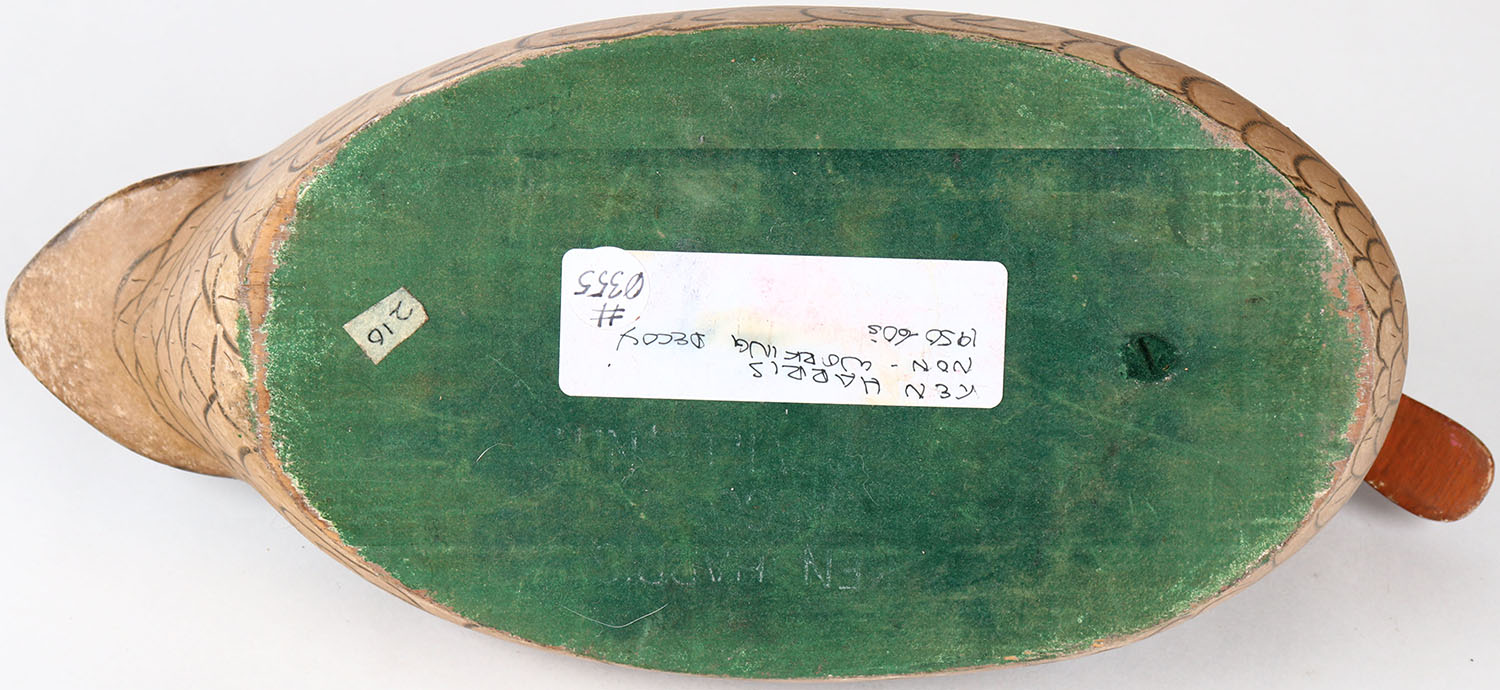 KEN HARRIS
NON - WORKING DECOY
1950-60's
#
Ø355
210